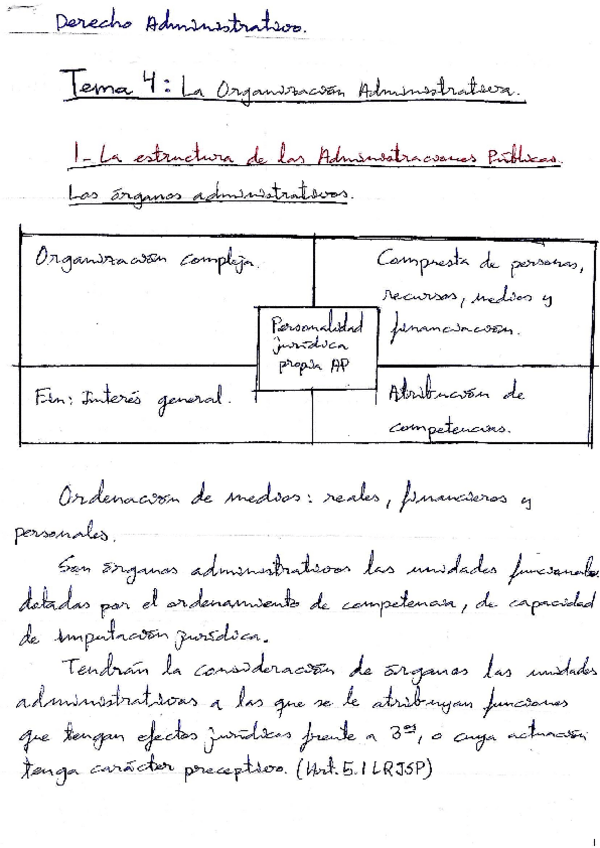 Derecho Administrativo.
Tema 4: La Organización Administrativa.
1- La estructura de las Administraciones Públicas.
Los órganos administrativos.
Organización compleja.
Compuesta de personas,
recursos, medios y
financiación.
Personalidad
jurídica
propia AP
Fin: Interés general.
Atribución de
competencias.
Ordenación de medios: reales, financieros y
personales.
Son órganos administrativos las unidades funcionales
dotadas por el ordenamiento de competencia, de capacidad
de imputación jurídica.
Tendrán la consideración de órganos las unidades
administrativas a las que se le atribuyan funciones
que tengan efectos jurídicos frente a 3os, o cuya actuación
tenga carácter preceptivo. (Art. 5.1 LRJSP)
1